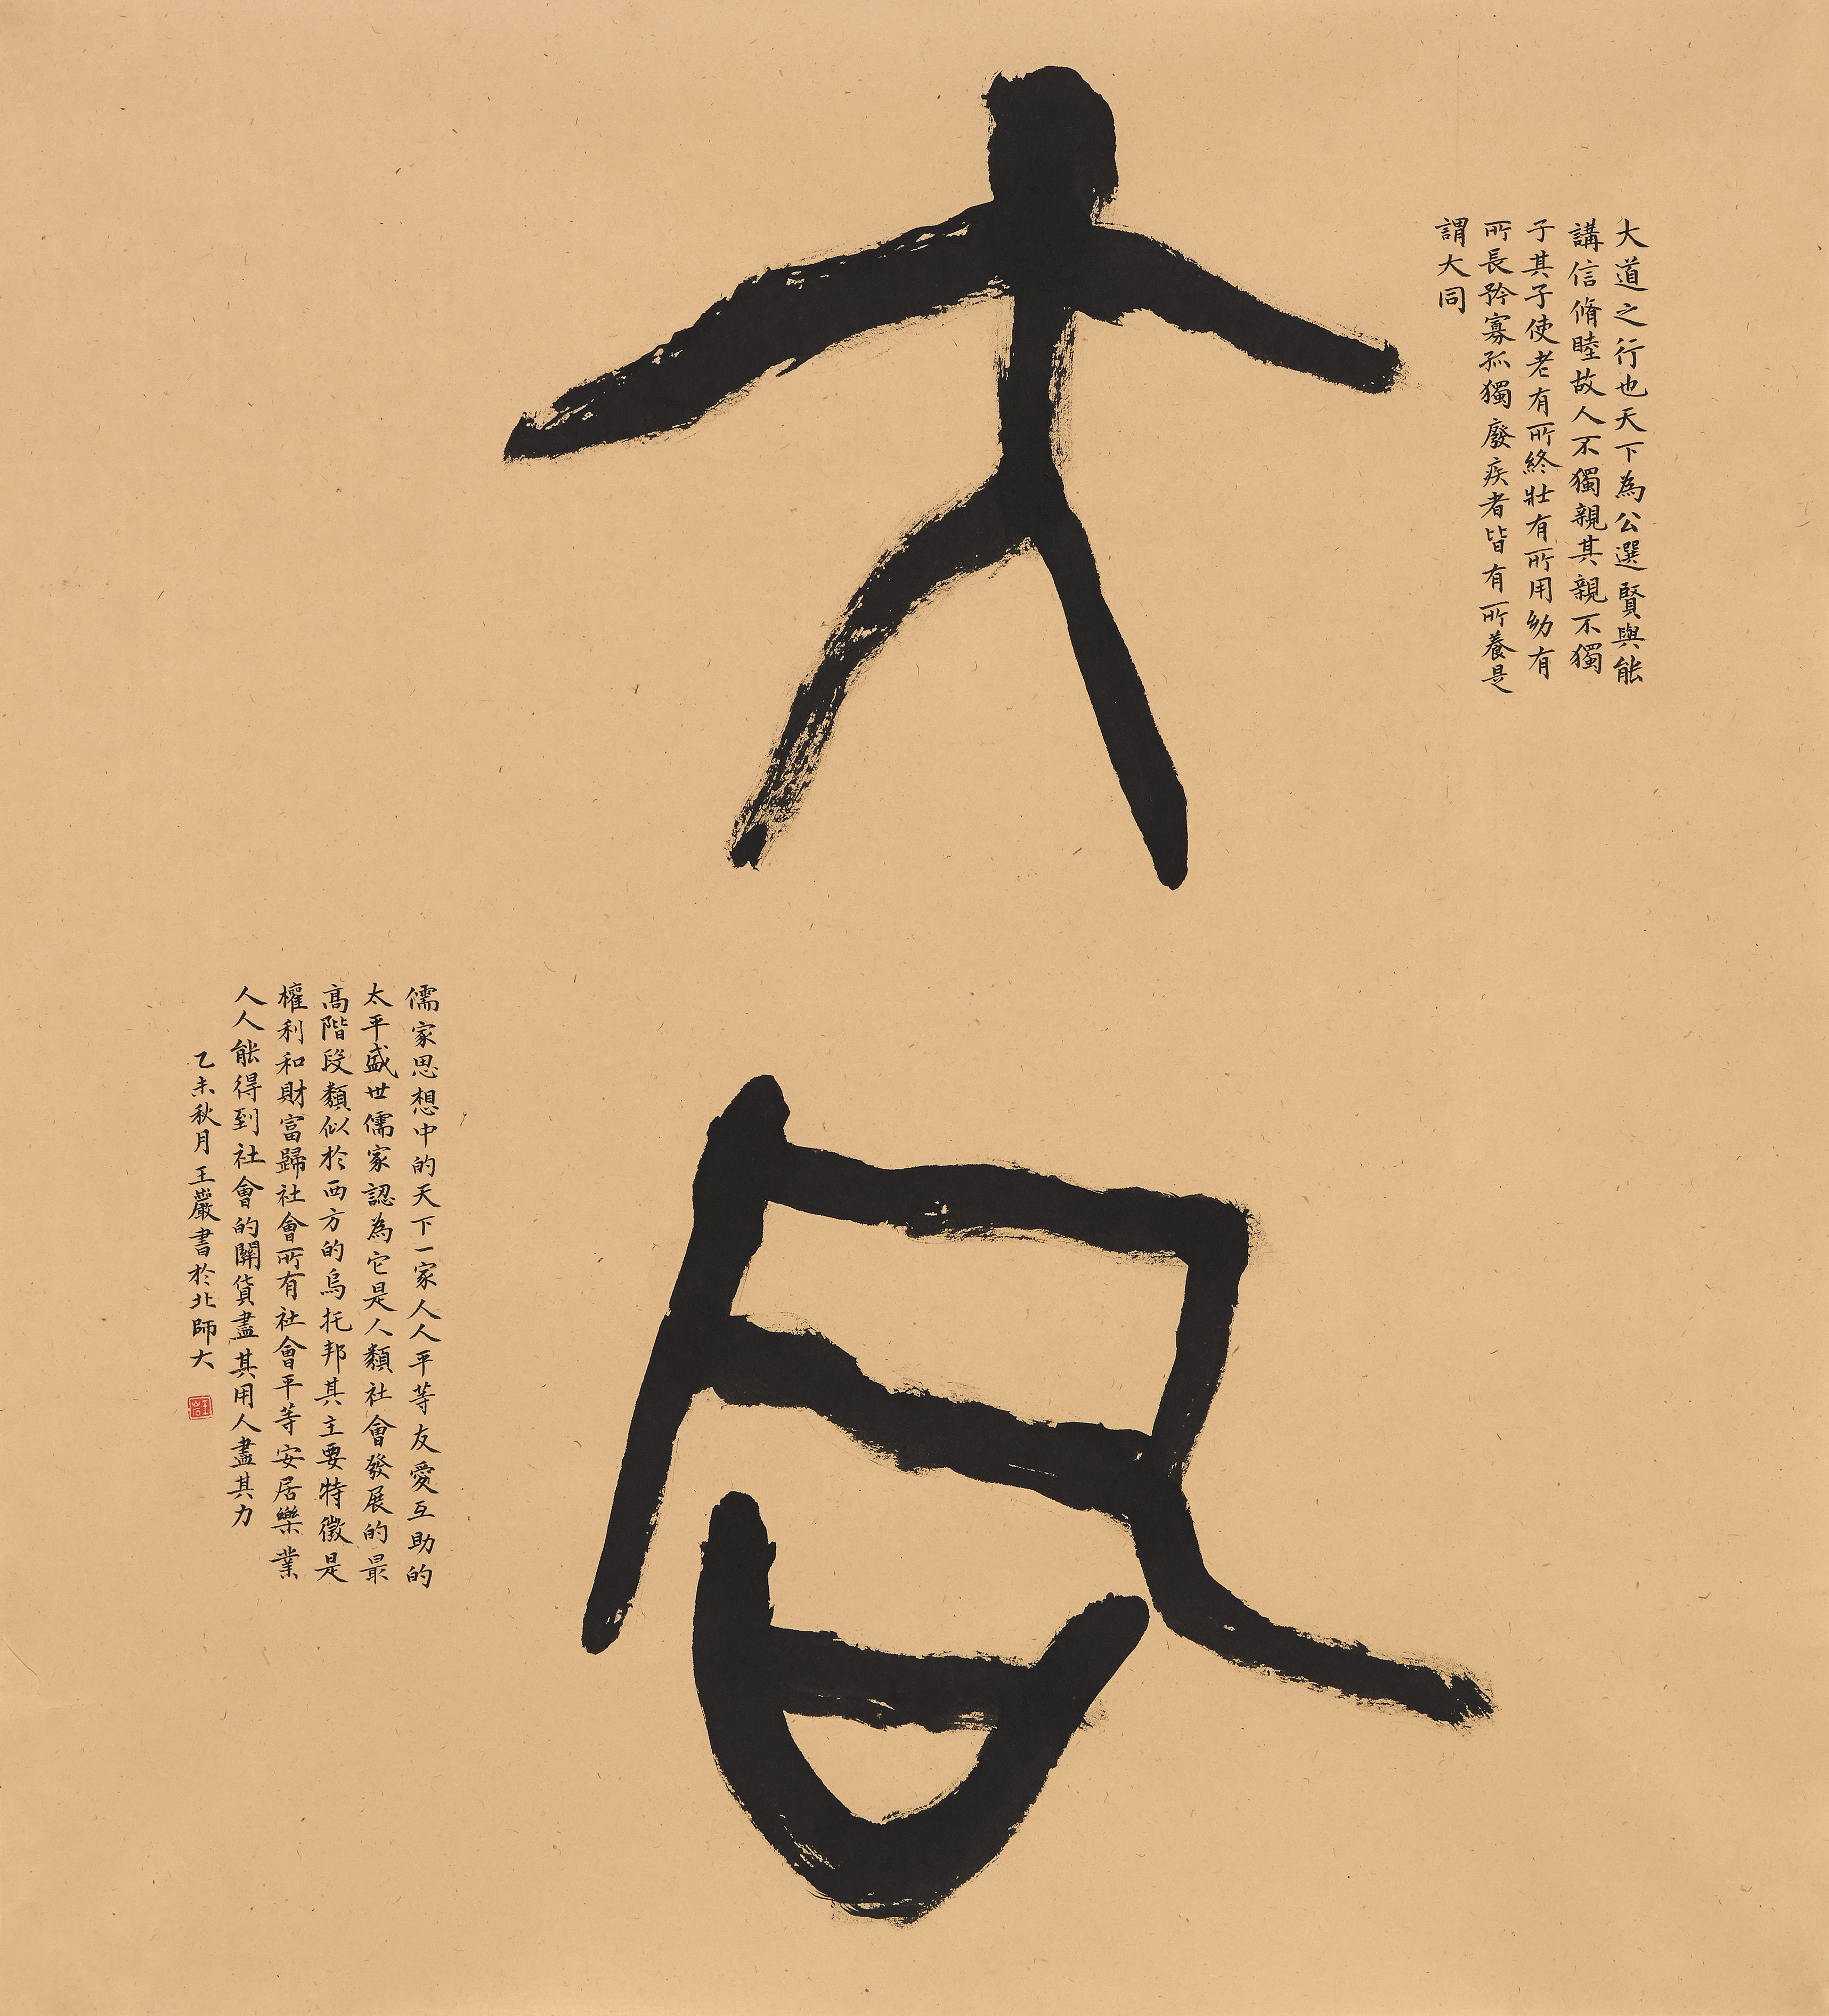 大同
大道之行也天下為公選賢與能
講信脩睦故人不獨親其親不獨
子其子使老有所終壯有所用幼有
所長矜寡孤獨廢疾者皆有所養是
謂大同
儒家思想中的天下一家人人平等友愛互助的
太平盛世儒家認為它是人類社會發展的最
高階段類似於西方的烏托邦其主要特徵是
權利和財富歸社會所有社會平等安居樂業
人人能得到社會的關貨盡其用人盡其力
乙未秋月王巖書於北師大